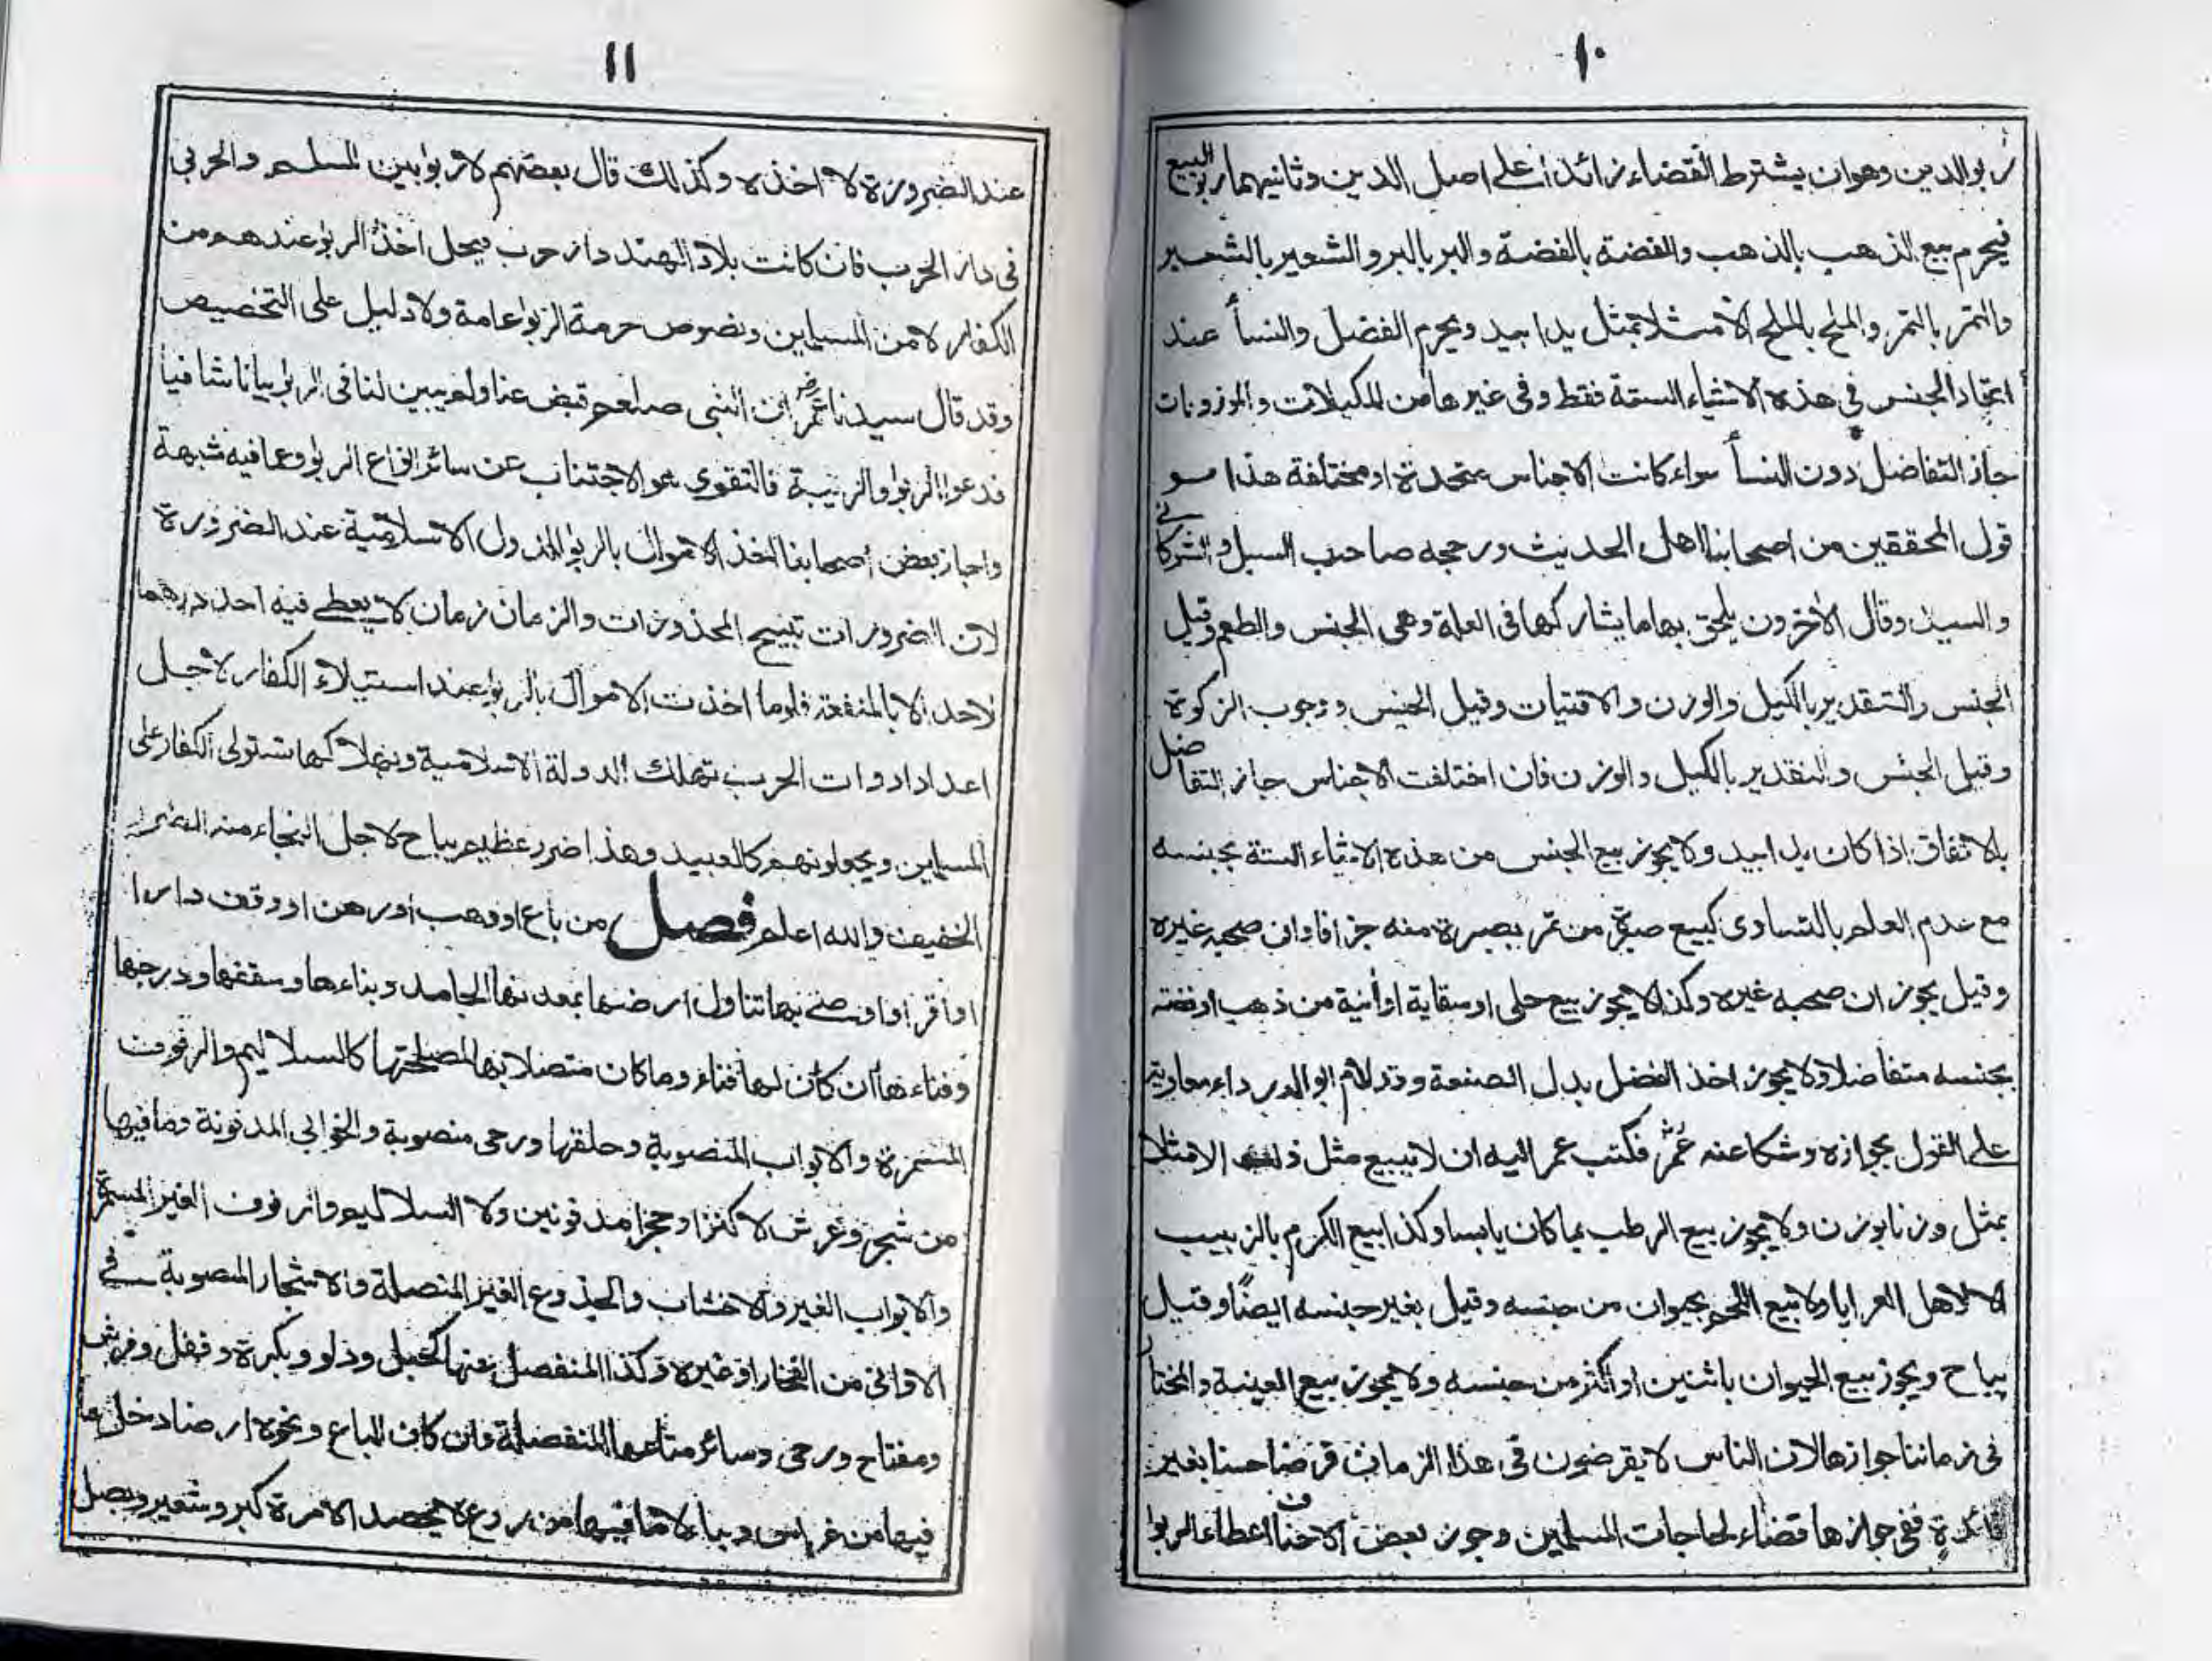 ١٠
ربو الدين وهو ان يشترط القضاء زائدا على اصل الدين وثانيهما ربو البيع
فيحرم بيع الذهب بالذهب والفضة بالفضة والبر بالبر والشعير بالشعير
والتمر بالتمر والملح بالملح الا مثلا بمثل يدا بيد ويحرم الفضل والنسأ عند
اتحاد الجنس في هذه الاشياء الستة فقط وفي غيرها من المكيلات والموزونات
جاز التفاضل دون النسأ سواء كانت الاجناس متحدة او مختلفة هذا هو
قول المحققين من اصحابنا اهل الحديث ورجحه صاحب السبل والشوكاني
والسيد وقال الأخرون يلحق بها ما يشاركها في العلة وهي الجنس والطعم وقيل
الجنس والتقدير بالكيل والوزن والاقتيات وقيل الجنس ووجوب الزكوة
وقيل الجنس والتقدير بالكيل والوزن فان اختلفت الاجناس جاز التفاضل
بالاتفاق اذا كان يدا بيد ولا يجوز بيع الجنس من هذه الاشياء الستة بجنسه
مع عدم العلم بالتساوي كبيع صبرة من تمر بصبرة منه جزافا وان صحبه غيره
وقيل يجوز ان صحبه غيره وكذا لا يجوز بيع حلى او سقاية او أنية من ذهب او فضة
بجنسه متفاضلا ولا يجوز اخذ الفضل بدل الصنعة وقد لام ابو الدرداء معاوية
على القول بجوازه وشكا عنه عمر فكتب عمر اليه ان لا تبيع مثل ذلك الا مثلا
بمثل وزنا بوزن ولا يجوز بيع الرطب بما كان يابسا وكذا بيع الكرم بالزبيب
الا لاهل العرايا ولا بيع اللحم بحيوان من جنسه وقيل بغير جنسه ايضا وقيل
يباح ويجوز بيع الحيوان باثنين او اكثر من جنسه ولا يجوز بيع العينة والمختار
في زماننا جوازها لان الناس لا يقرضون في هذا الزمان قرضا حسنا بغير
فائدة ففي جوازها قضاء لحاجات المسلمين وجوز بعض الاحناف اعطاء الربوا
١١
عند الضرورة لا اخذه وكذلك قال بعضهم لا ربوا بين المسلم والحربي
في دار الحرب فان كانت بلاد الهند دار حرب فيحل اخذ الربوا عندهم من
الكفار لا من المسلمين ونصوص حرمة الربوا عامة ولا دليل على التخصيص
وقد قال سيدنا عمر رض ان النبي صلعم قبض عنا ولم يبين لنا في الربوا بيانا شافيا
فدعوا الربوا والريبة فالتقوى هو الاجتناب عن سائر انواع الربوا وعما فيه شبهة
واجاز بعض اصحابنا اخذ الاموال بالربوا للدول الاسلامية عند الضرورة
لان الضرورات تبيح المحذورات والزمان زمان لا يعطي فيه احد درهما
لاحد الا بالمنفعة فلو ما اخذت الاموال بالربوا عند استيلاء الكفار لاجل
اعداد ادوات الحرب تهلك الدولة الاسلامية وبهلاكها تستولى الكفار على
المسلمين ويجعلونهم كالعبيد وهذا ضرر عظيم يباح لاجل النجاء منه الضرر
الخفيف والله اعلم فصل من باع او وهب او رهن او وقف دارا
او أقر او اوصى بها تناول ارضها بمعدنها الجامد وبناءها وسقفها ودرجها
وفناءها ان كان لها فناء وما كان متصلا بها لمصلحتها كالسلاليم والرفوف
المسمرة والابواب المنصوبة وحلقها ورحى منصوبة والخوابي المدفونة وما فيها
من شجر وغرش لا كنزا وحجرا مدفونين ولا السلاليم والرفوف الغير المسمرة
والابواب الغير والاخشاب والجذوع الغير المتصلة والاشجار المنصوبة في
الاواني من الفخار او غيره وكذا المنفصل عنها كحبل ودلو وبكرة وقفل وفرش
ومفتاح ورحى وسائر متاعها المنفصلة وان كان المباع ونحوه ارضا دخل ما
فيها من غراس وبناء لا ما فيها من زرع لا يحصد الا مرة كبر وشعير وبصل